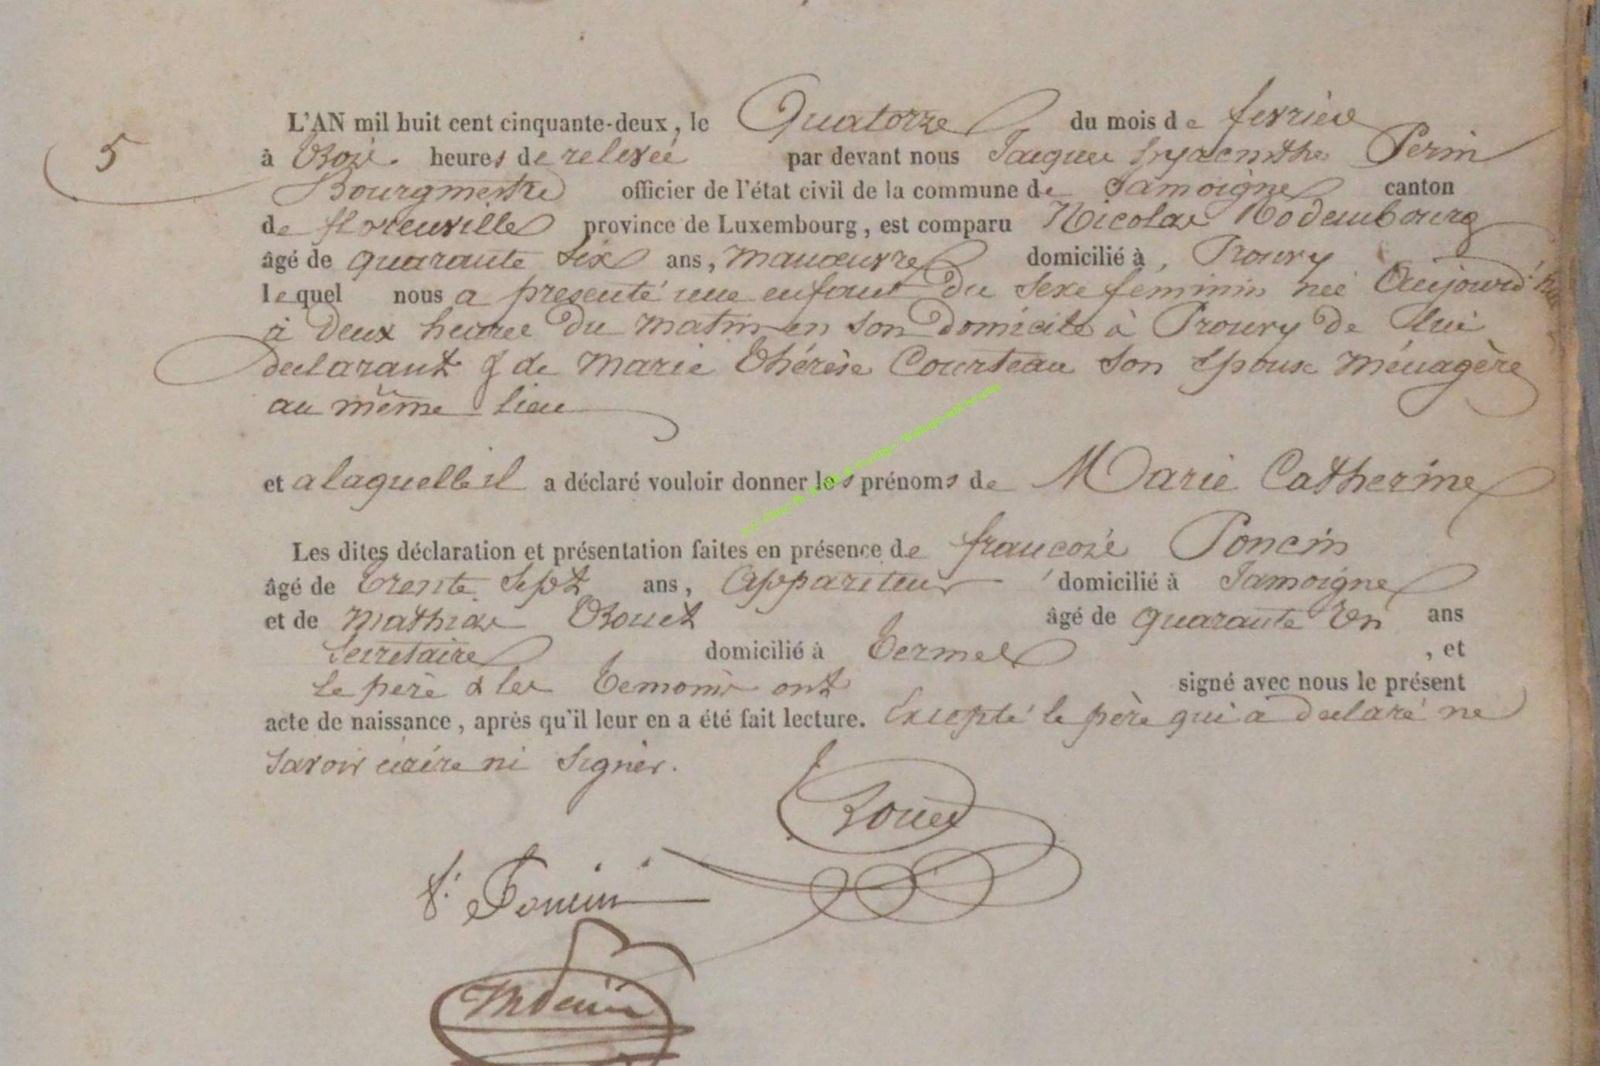 5
L'AN mil huit cent cinquante-deux, le Quatorze du mois de fevrier
à trois heures de relevée par devant nous Jacques hyacinthe Perin
Bourgmestre officier de l'état civil de la commune de Jamoigne canton
de florenville province de Luxembourg, est comparu Nicolas Rodembourg
âgé de quarante six ans, manœuvre domicilié à Prouvy
lequel nous a presenté une enfant du sexe feminin née Aujourd'hui
à deux heures du matin en son domicile à Prouvy de lui
declarant & de Marie thérèse Courteau son epouse ménagère
au même lieu
et a laquelle il a déclaré vouloir donner les prénoms de Marie Catherine
Les dites déclaration et présentation faites en présence de françois Poncin
âgé de trente sept ans, Appariteur domicilié à Jamoigne
et de Mathias âgé de quarante un ans
secretaire domicilié à termes , et
le père & les temoins ont signé avec nous le présent
acte de naissance, après qu'il leur en a été fait lecture. Excepté le père qui a declaré ne
savoir écrire ni signer.
f. Poncin